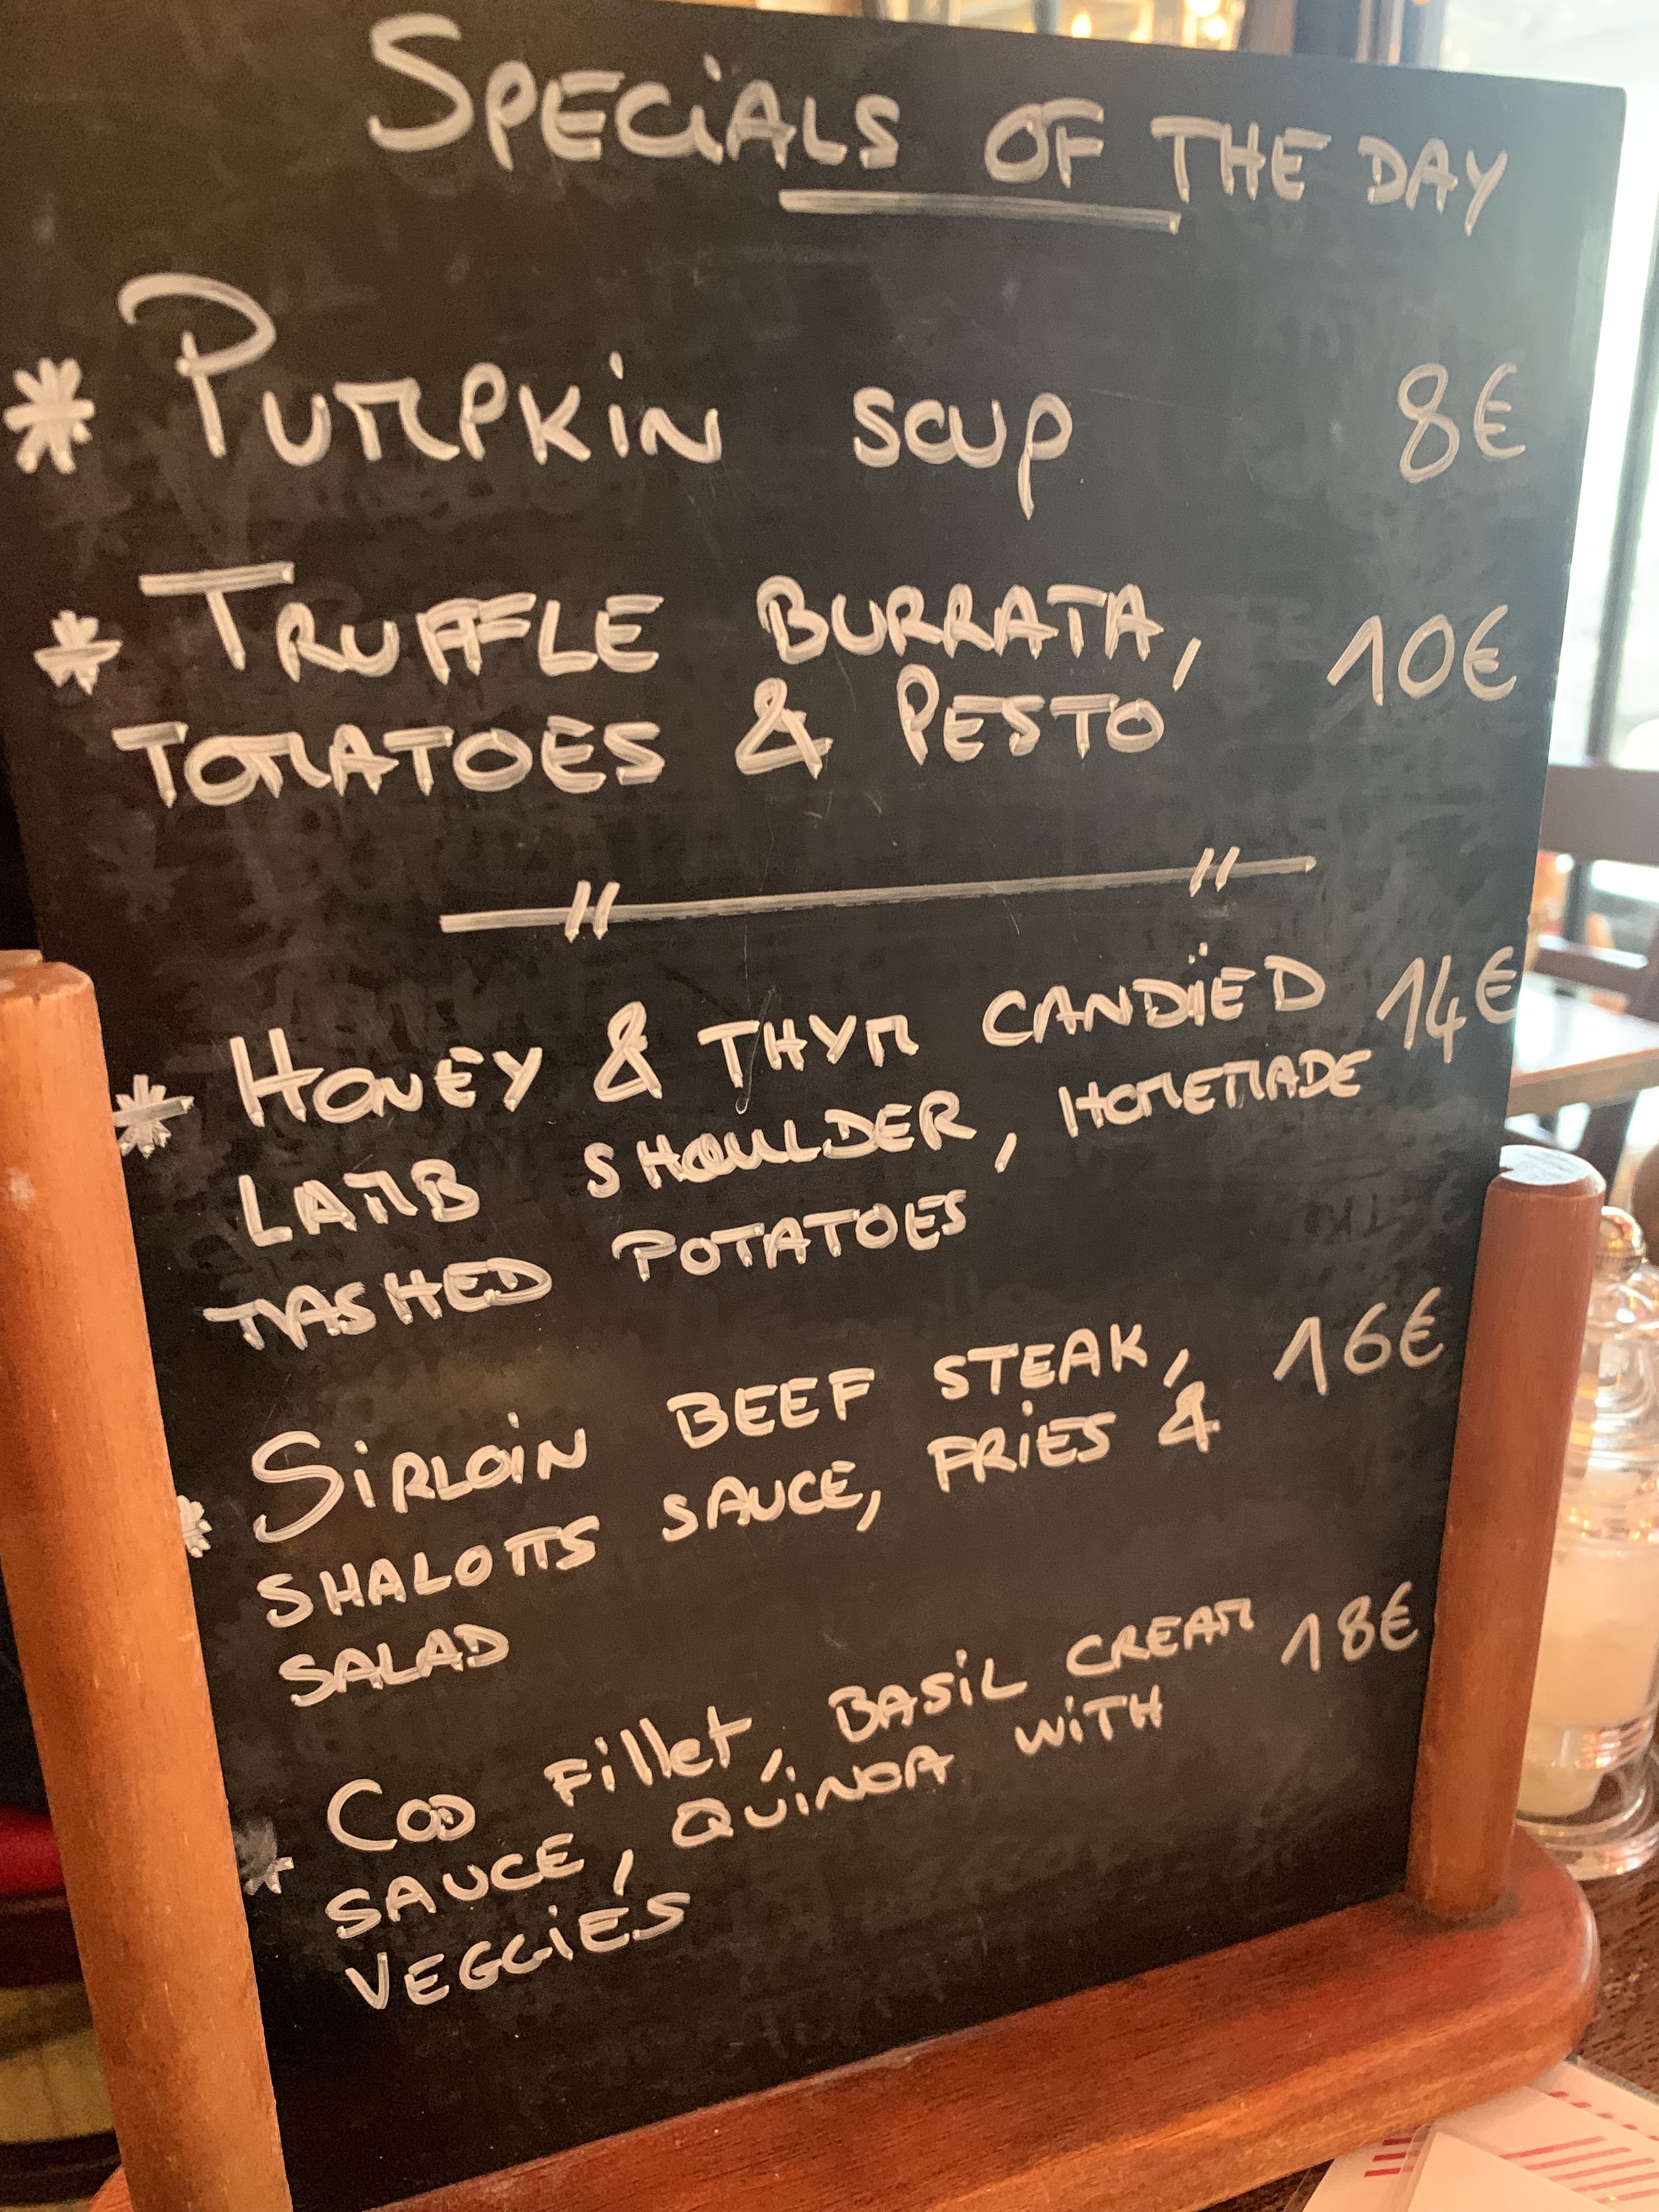 SPECiALS OF THE DAY
* PUMPKiN SOUP 8€
* TRUFFLE BURRATA, 10€
TOMATOES & PESTO
* HONEY & THYM CANDIED 14€
LAMB SHOULDER, HOMEMADE
MASHED POTATOES
* SiRLOiN BEEF STEAK, 16€
SHALOTTS SAUCE, FRiES &
SALAD
* COD Fillet, BASiL CREAM 18€
SAUCE, QUiNOA WiTH
VEGGiES